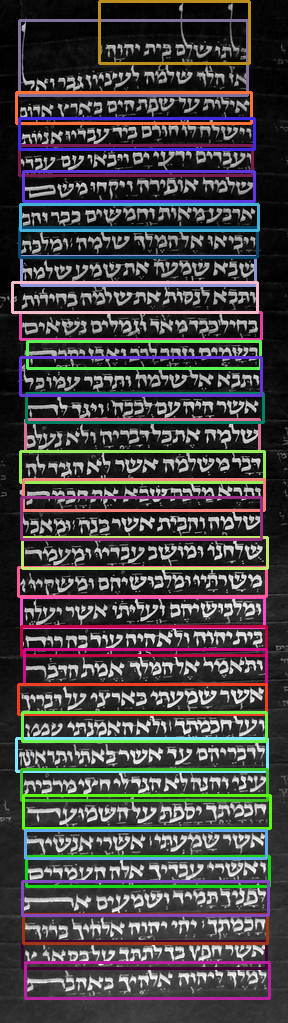 כלתו שלם בית יהוה
אז הלך שלמה לעציון גבר ואל
אילות על שפת הים בארץ אדום
וישלח לו חורם ביד עבדיו אניות
ועבדים ידעי ים ויבאו עם עבדי
שלמה אופירה ויקחו משם
ארבע מאות וחמשים ככר זהב
ויביאו אל המלך שלמה ומלכת
שבא שמעה את שמע שלמה
ותבא לנסות את שלמה בחידות
בחיל כבד מאד וגמלים נשאים
בשמים וזהב לרב ואבן יקרה
ותבא אל שלמה ותדבר עמו כל
אשר היה עם לבבה ויגד לה
שלמה את כל דבריה ולא נעלם
דבר משלמה אשר לא הגיד לה
ותרא מלכת שבא את חכמת
שלמה והבית אשר בנה ומאכל
שלחנו ומושב עבדיו ומעמד
משרתיו ומלבושיהם ומשקיו
ומלבושיהם ועליתו אשר יעלה
בית יהוה ולא היה עוד בה רוח
ותאמר אל המלך אמת הדבר
אשר שמעתי בארצי על דבריך
ועל חכמתך ולא האמנתי
לדבריהם עד אשר באתי ותראינה
עיני והנה לא הגד לי חצי מרבית
חכמתך יספת על השמועה
אשר שמעתי אשרי אנשיך
ואשרי עבדיך אלה העמדים
לפניך תמיד ושמעים את
חכמתך יהי יהוה אלהיך ברוך
אשר חפץ בך לתתך על כסאו
למלך ליהוה אלהיך באהבת